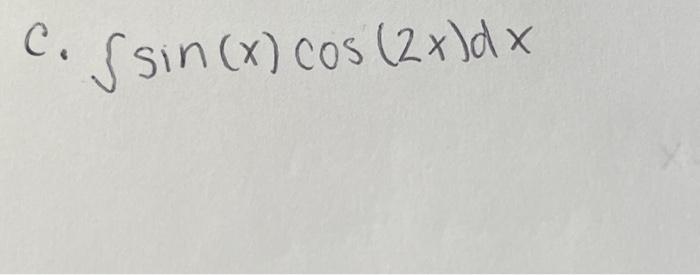 C. ∫ sin(x) cos(2x)dx